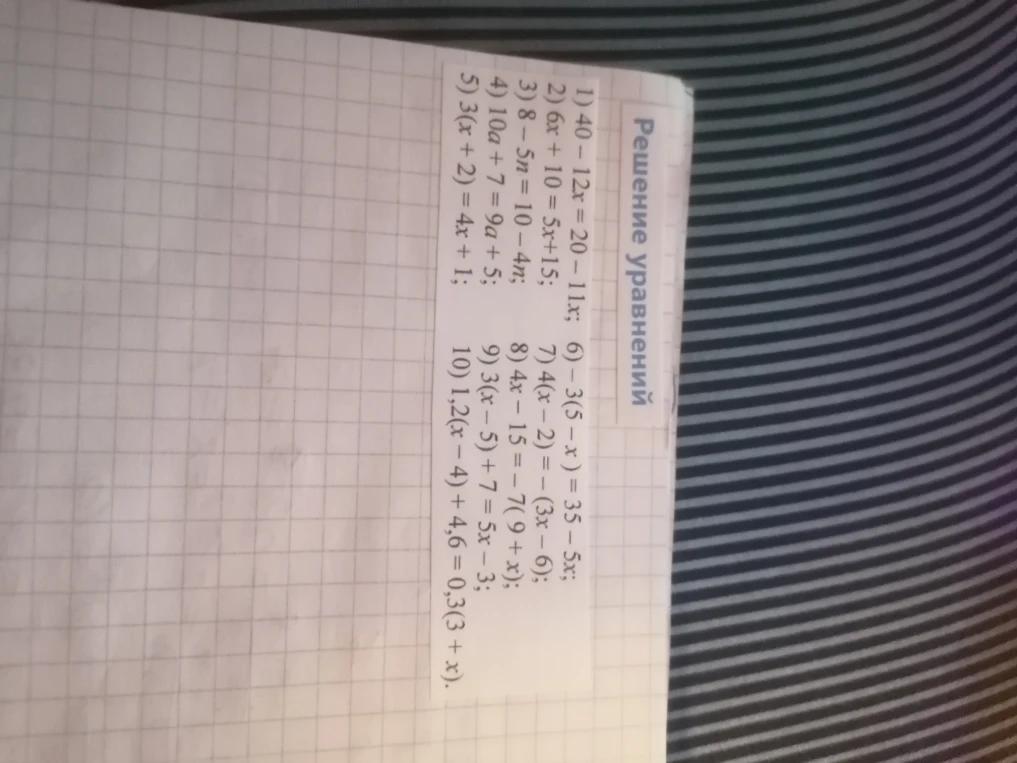 Решение уравнений
1) 40 – 12x = 20 – 11x; 6) – 3(5 – x ) = 35 – 5x;
2) 6x + 10 = 5x+15; 7) 4(x – 2) = – (3x – 6);
3) 8 – 5n = 10 – 4n; 8) 4x – 15 = – 7( 9 + x);
4) 10a + 7 = 9a + 5; 9) 3(x – 5) + 7 = 5x – 3;
5) 3(x + 2) = 4x + 1; 10) 1,2(x – 4) + 4,6 = 0,3(3 + x).